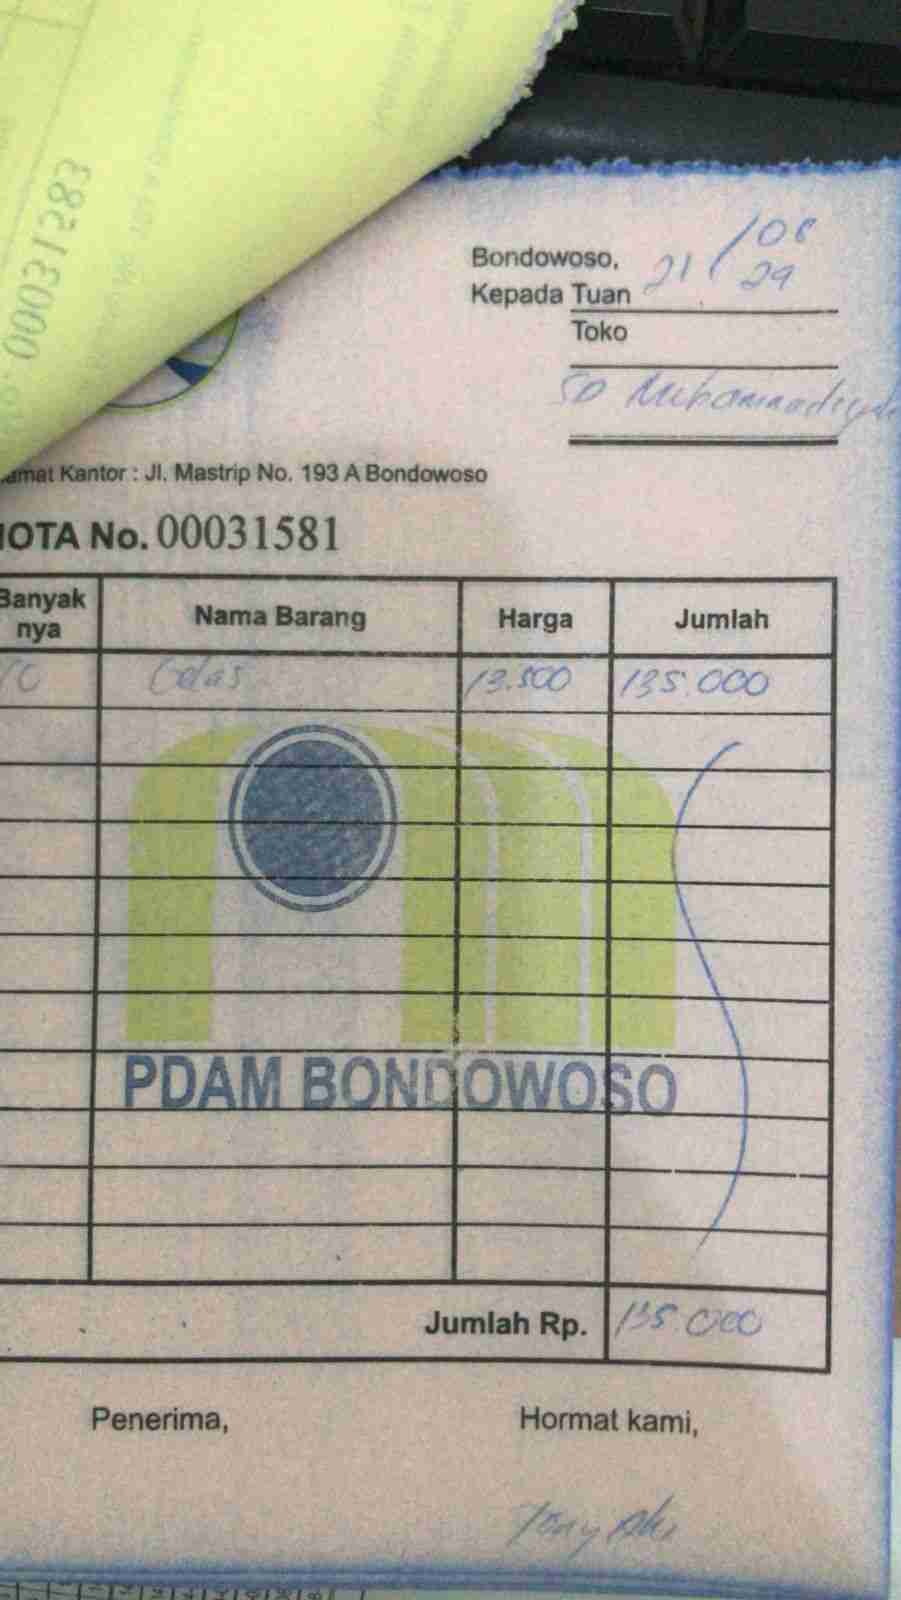 00031583
Bondowoso, 21/08
Kepada Tuan
Toko
SD Muhammadiyah
amat Kantor : Jl. Mastrip No. 193 A Bondowoso
NOTA No. 00031581
Banyak nya Nama Barang Harga Jumlah
10 Gelas 13.500 135.000
PDAM BONDOWOSO
Jumlah Rp. 135.000
Penerima, Hormat kami,